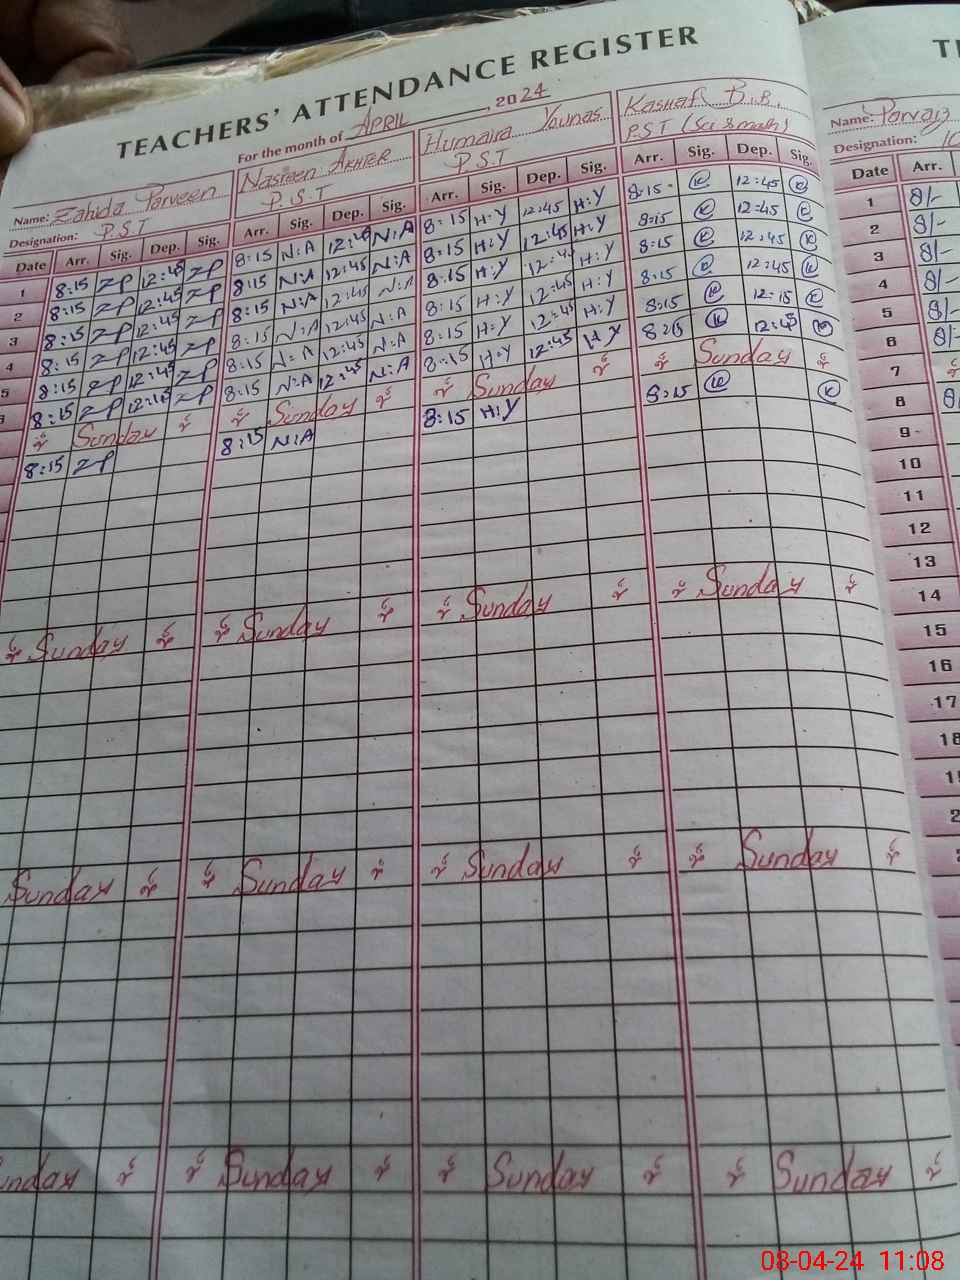 TEACHERS' ATTENDANCE REGISTER
For the month of APRIL, 2024
Name: Zahida Parveen Nasreen AKHTER Humaira Younas Kashaf B.i.B.
Designation: P.S.T P.S.T P.S.T P.S.T (Sci & math)
Date Arr. Sig. Dep. Sig. Arr. Sig. Dep. Sig. Arr. Sig. Dep. Sig. Arr. Sig. Dep. Sig.
1 8:15 ZP 12:45 ZP 8:15 N:A 12:45 N:A 8:15 H:Y 12:45 H:Y 8:15 K 12:45 K
2 8:15 ZP 12:45 ZP 8:15 N:A 12:45 N:A 8:15 H:Y 12:45 H:Y 8:15 K 12:45 K
3 8:15 ZP 12:45 ZP 8:15 N:A 12:45 N:A 8:15 H:Y 12:45 H:Y 8:15 K 12:45 K
4 8:15 ZP 12:45 ZP 8:15 N:A 12:45 N:A 8:15 H:Y 12:45 H:Y 8:15 K 12:45 K
5 8:15 ZP 12:45 ZP 8:15 N:A 12:45 N:A 8:15 H:Y 12:45 H:Y 8:15 K 12:15 K
8:15 ZP 12:45 ZP 8:15 N:A 12:45 N:A 8:15 H:Y 12:45 H:Y 8:15 K 12:45 K
Sunday Sunday Sunday Sunday
8:15 ZP 8:15 N:A 8:15 H:Y 8:15 K K
Sunday Sunday Sunday Sunday
Sunday Sunday Sunday Sunday
Sunday Sunday Sunday
Name: Parvaiz
Designation:
Date Arr.
1 8/-
2 8/-
3 8/-
4 8/-
5 8/-
6 8/-
7
8
9
10
11
12
13
14
15
16
17
18
08-04-24 11:08